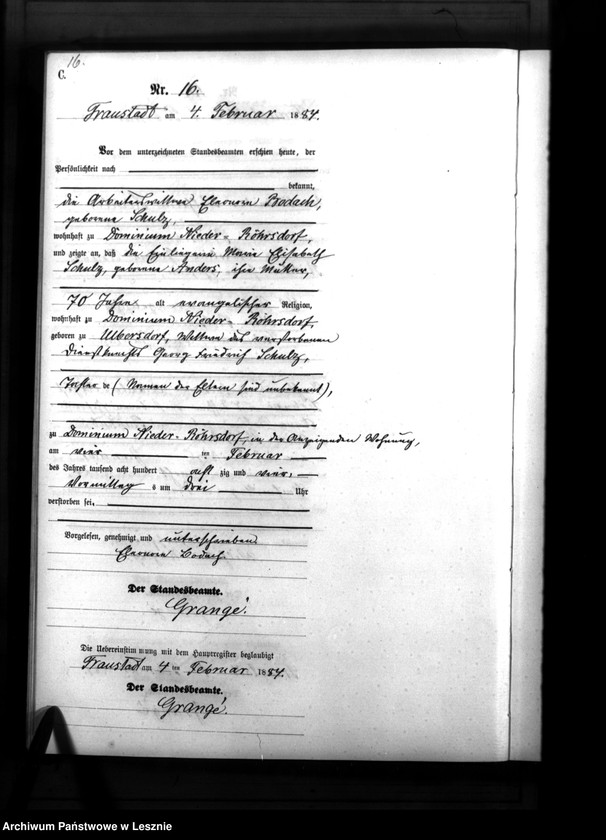 16.
C.
Nr. 16.
Fraustadt am 4. Februar 1884.
Vor dem unterzeichneten Standesbeamten erschien heute, der
Persönlichkeit nach
bekannt,
die Arbeiterwittwe Eleonore Bodach,
geborene Schulz,
wohnhaft zu Dominium Nieder-Röhrsdorf,
und zeigte an, daß die Marie Elisabeth
Schulz, geborene Anders, ihre Mutter,
70 Jahre alt evangelischer Religion,
wohnhaft zu Dominium Nieder-Röhrsdorf,
geboren zu Ulbersdorf, Wittwe des verstorbenen
Dienstknechts Georg Friedrich Schulz,
Tochter de (Namen der Eltern sind unbekannt),
zu Dominium Nieder-Röhrsdorf, in der Anzeigenden Wohnung,
am vier ten Februar
des Jahres tausend acht hundert acht zig und vier,
Vormittag s um drei Uhr
verstorben sei.
Vorgelesen, genehmigt und unterschrieben
Eleonore Bodach
Der Standesbeamte.
Grangé.
Die Uebereinstimmung mit dem Hauptregister beglaubigt
Fraustadt am 4 ten Februar 1884.
Der Standesbeamte.
Grangé.
Archiwum Państwowe w Lesznie